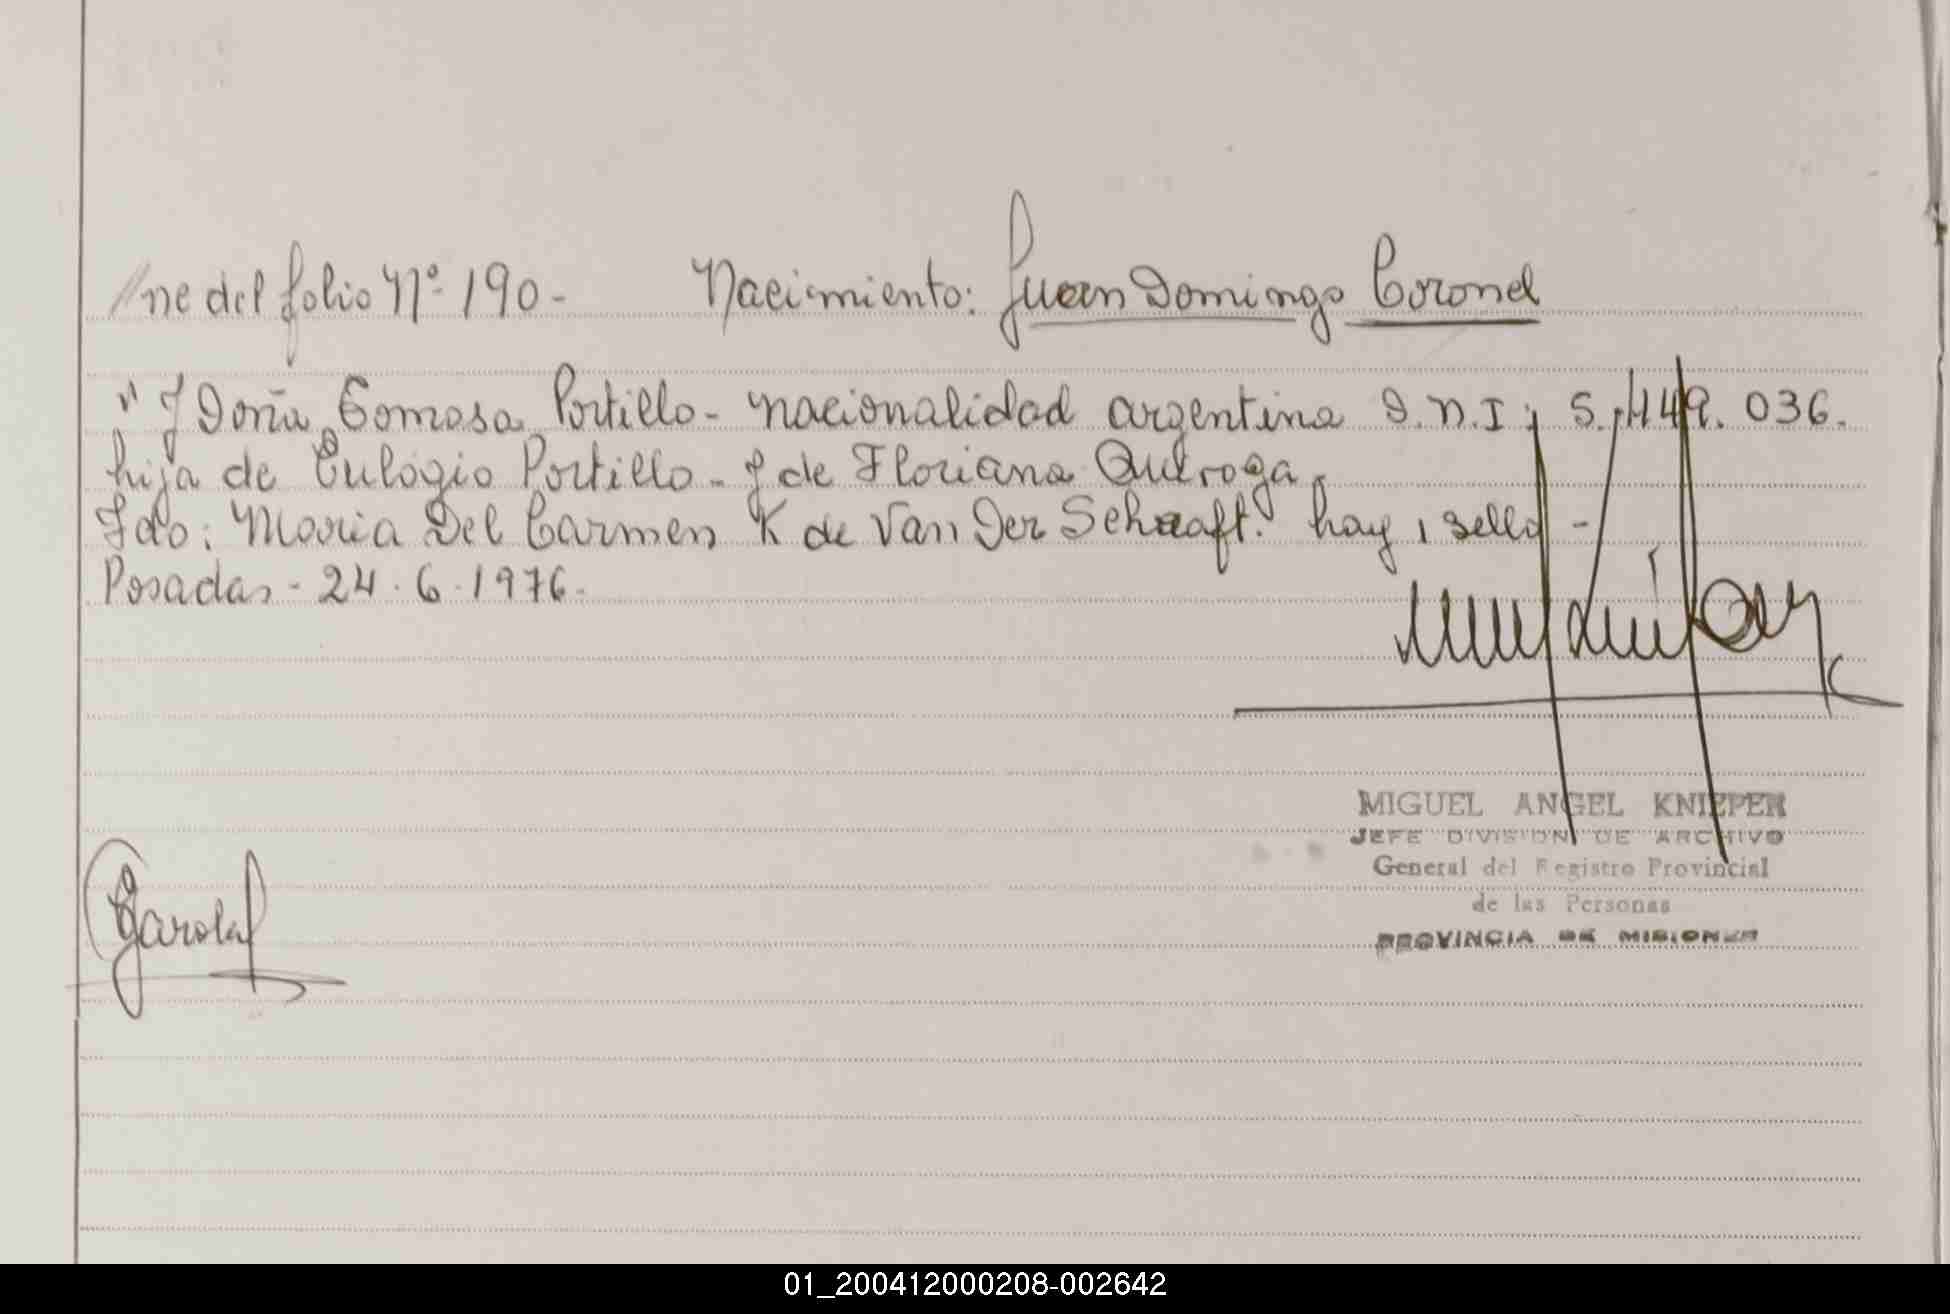 //ne del folio Nº 190- Nacimiento: Juan Domingo Coronel
" y Doña Tomasa Portillo - nacionalidad argentina D.N.I; 5.449.036.
hija de Eulogio Portillo - y de Floriana Quiroga.
Fdo: Maria Del Carmen K de Van Der Schaaft. hay 1 sello -
Posadas - 24.6.1976.
MIGUEL ANGEL KNIEPER
JEFE DIVISION DE ARCHIVO
General del Registro Provincial
de las Personas
PROVINCIA DE MISIONES
01_200412000208-002642